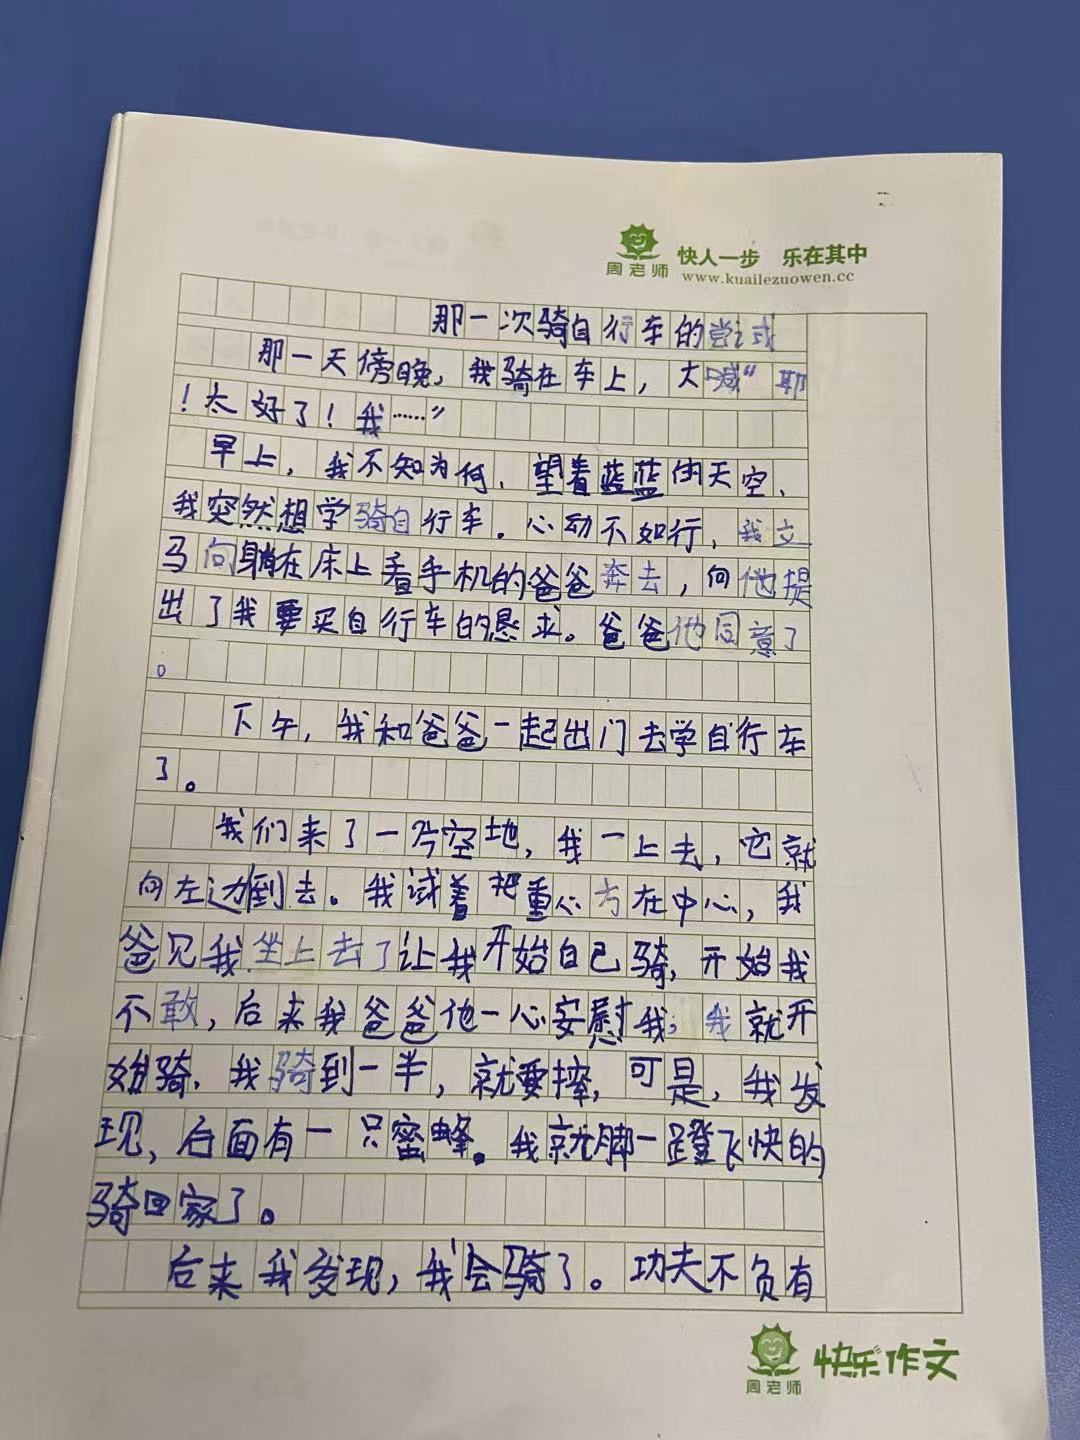 周老师
快人一步 乐在其中
www.kuailezuowen.cc
那一次骑自行车的尝试
那一天傍晚，我骑在车上，大喊“耶
！太好了！我……”
早上，我不知为何，望着蓝蓝的天空，
我突然想学骑自行车。心动不如行，我立
马向躺在床上看手机的爸爸奔去，向他提
出了我要买自行车的恳求。爸爸他同意了
。
下午，我和爸爸一起出门去学自行车
了。
我们来了一片空地，我一上去，它就
向左边倒去。我试着把重心方在中心，我
爸见我坐上去了让我开始自己骑，开始我
不敢，后来我爸爸他一心安慰我，我就开
始骑，我骑到一半，就要摔，可是，我发
现，后面有一只蜜蜂。我就脚一蹬飞快的
骑回家了。
后来我发现，我会骑了。功夫不负有
周老师
快乐作文